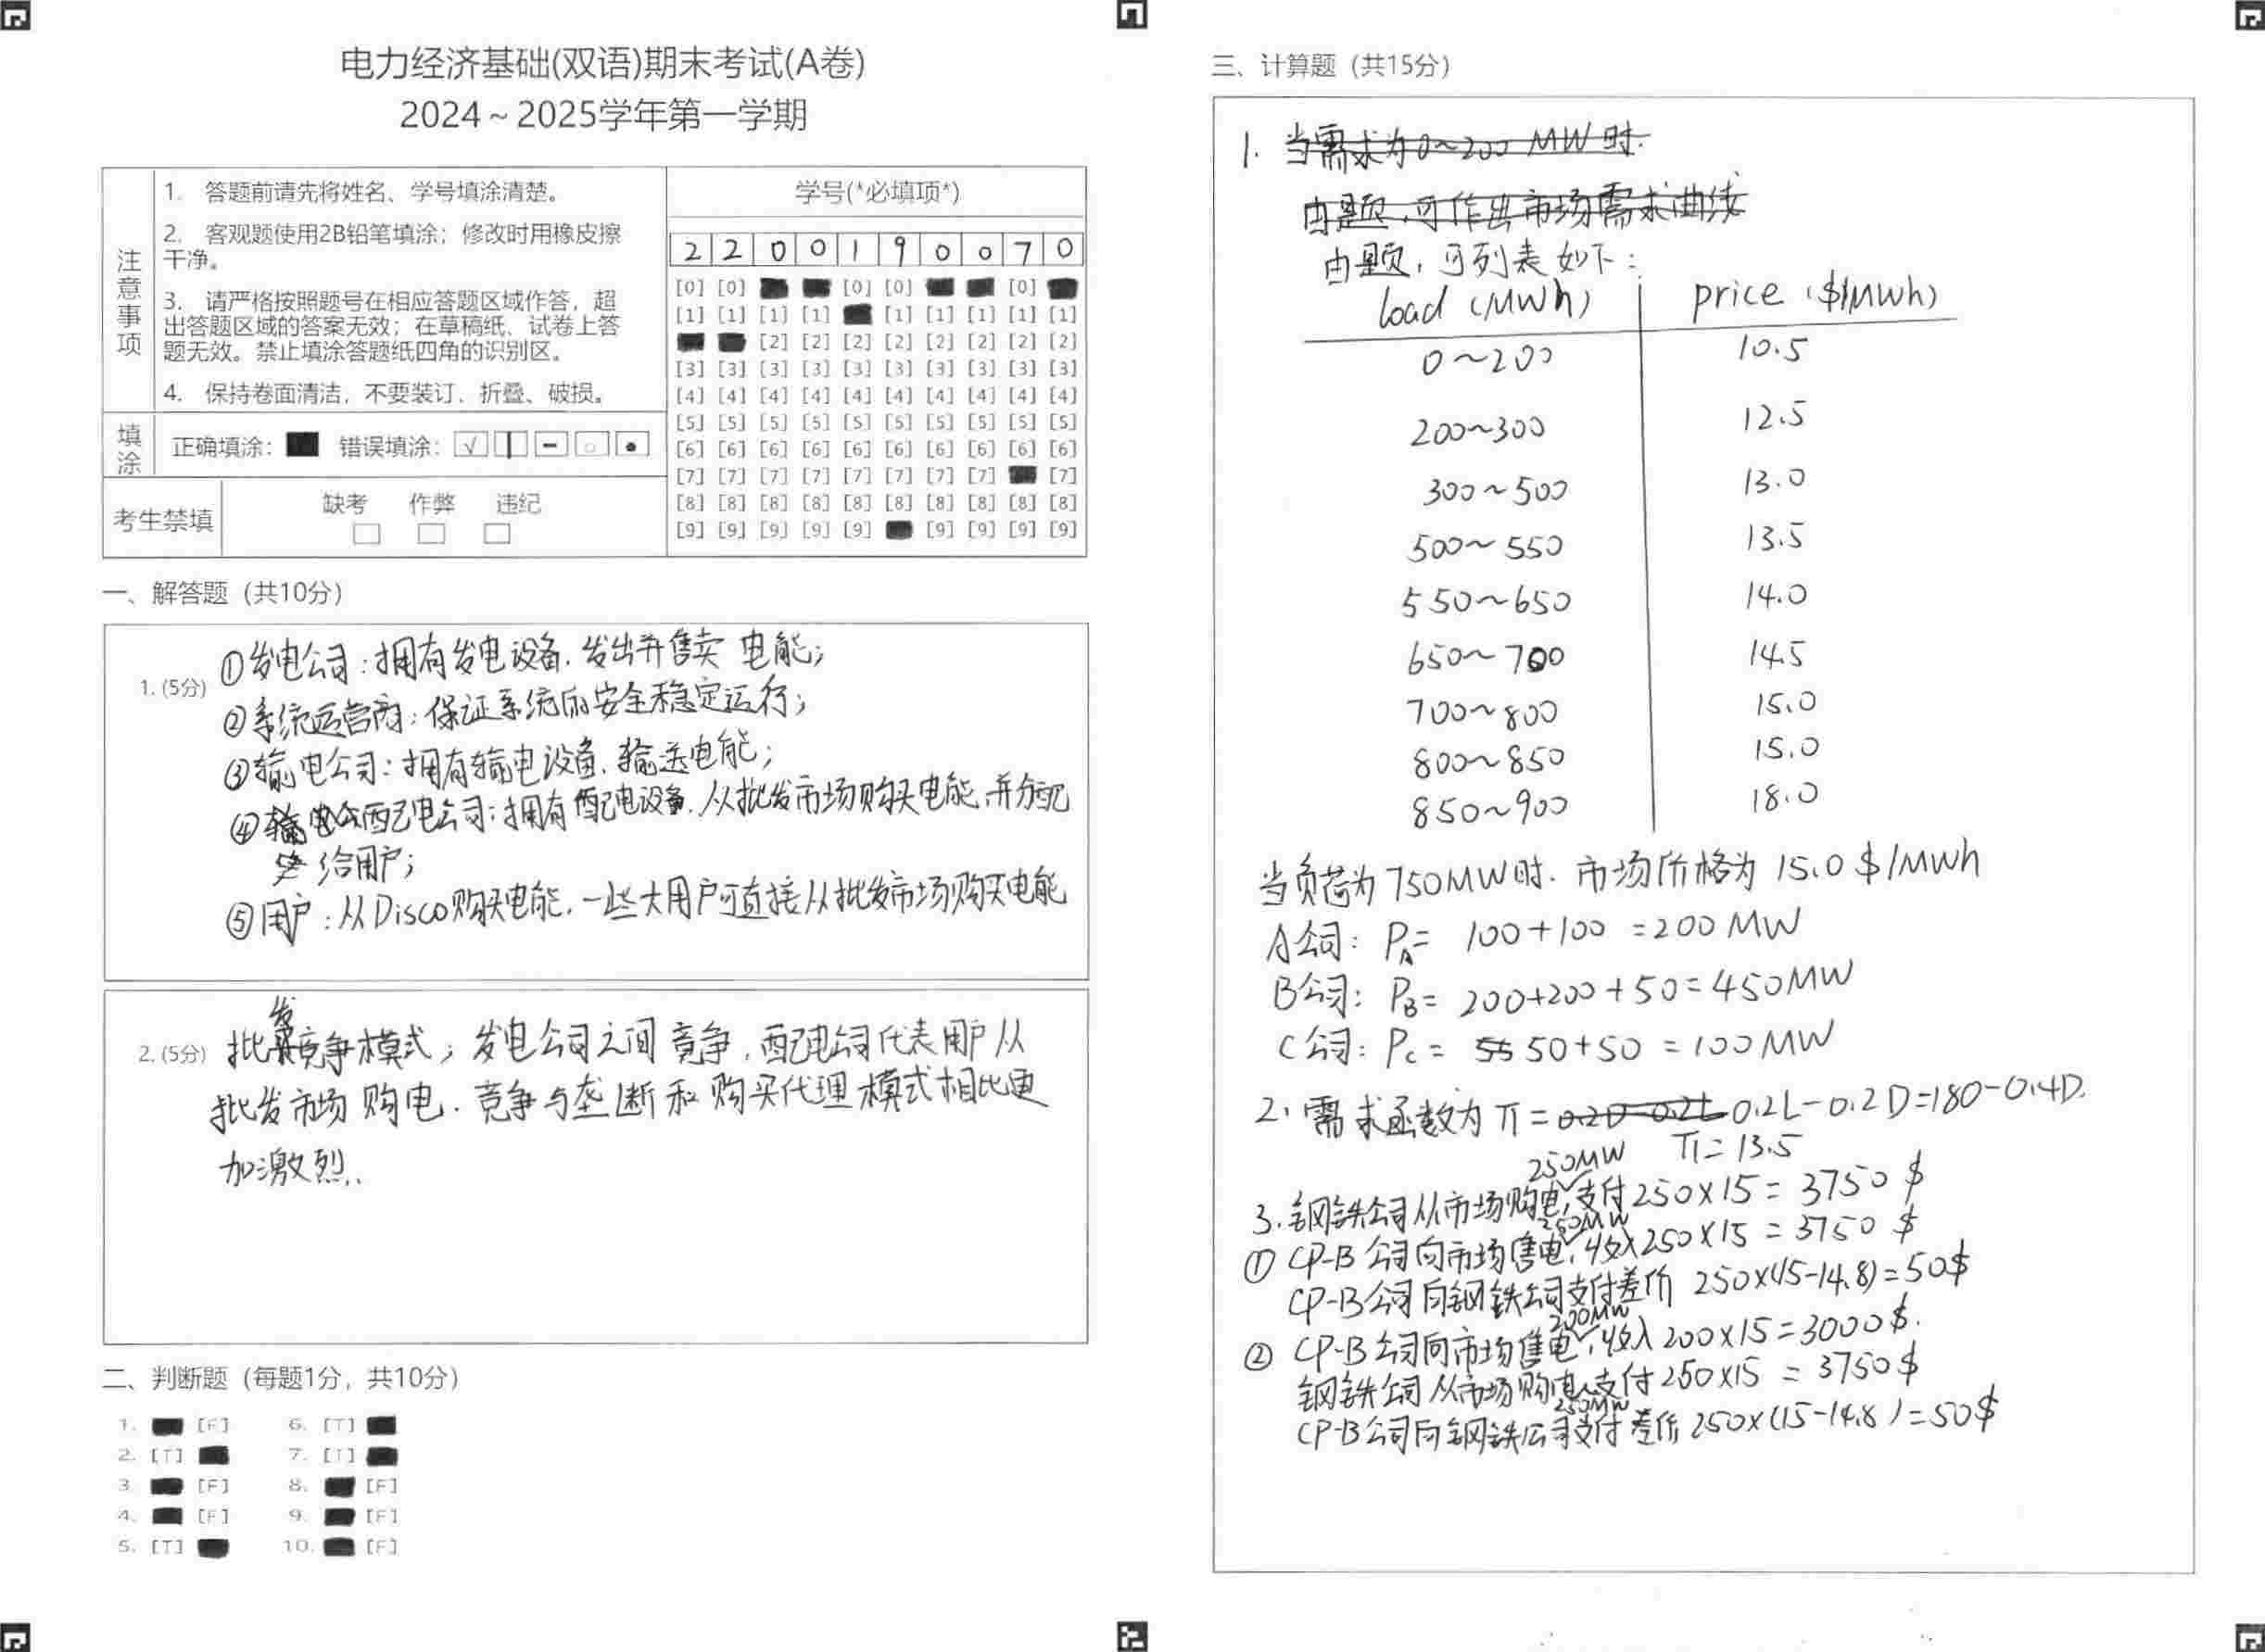 电力经济基础(双语)期末考试(A卷)
2024～2025学年第一学期
注意事项
1. 答题前请先将姓名、学号填涂清楚。
2. 客观题使用2B铅笔填涂；修改时用橡皮擦
干净。
3. 请严格按照题号在相应答题区域作答，超
出答题区域的答案无效；在草稿纸、试卷上答
题无效。禁止填涂答题纸四角的识别区。
4. 保持卷面清洁，不要装订、折叠、破损。
填涂
正确填涂： 错误填涂： √
考生禁填
缺考 作弊 违纪
学号(*必填项*)
2 2 0 0 1 9 0 0 7 0
[0] [0] [0] [0] [0]
[1] [1] [1] [1] [1] [1] [1] [1] [1]
[2] [2] [2] [2] [2] [2] [2] [2]
[3] [3] [3] [3] [3] [3] [3] [3] [3] [3]
[4] [4] [4] [4] [4] [4] [4] [4] [4] [4]
[5] [5] [5] [5] [5] [5] [5] [5] [5] [5]
[6] [6] [6] [6] [6] [6] [6] [6] [6] [6]
[7] [7] [7] [7] [7] [7] [7] [7] [7]
[8] [8] [8] [8] [8] [8] [8] [8] [8] [8]
[9] [9] [9] [9] [9] [9] [9] [9] [9]
一、解答题（共10分）
1. (5分)
①发电公司：拥有发电设备，发出并售卖 电能；
②系统运营商：保证系统的安全稳定运行；
③输电公司：拥有输电设备，输送电能；
④配电公司：拥有配电设备，从批发市场购买电能，并分配
给用户；
⑤用户：从Disco购买电能，一些大用户可直接从批发市场购买电能
2. (5分)
批发竞争模式；发电公司之间竞争，配电公司代表用户从
批发市场购电．竞争与垄断和购买代理模式相比更
加激烈．
二、判断题（每题1分，共10分）
1. [F] 6. [T]
2. [T] 7. [T]
3. [F] 8. [F]
4. [F] 9. [F]
5. [T] 10. [F]
三、计算题（共15分）
1. 当需求为0～200 MW时．
由题，可作出市场需求曲线
由题，可列表如下：
load (MWh) price ($/MWh)
0～200 10.5
200～300 12.5
300～500 13.0
500～550 13.5
550～650 14.0
650～700 14.5
700～800 15.0
800～850 15.0
850～900 18.0
当负荷为750MW时．市场价格为15.0 $/MWh
A公司：PA= 100+100 =200 MW
B公司：PB= 200+200+50=450MW
C公司：Pc= 50+50 =100MW
2. 需求函数为 π= 0.2L-0.2D=180-0.4D.
π=13.5
3. 钢铁公司从市场购电250MW，支付250×15= 3750 $
① CP-B公司向市场售电250MW，收入250×15 = 3750 $
CP-B公司向钢铁公司支付差价 250×(15-14.8)=50$
② CP-B公司向市场售电200MW，收入200×15=3000$.
钢铁公司从市场购电250MW，支付250×15 = 3750$
CP-B公司向钢铁公司支付差价250×(15-14.8)=50$